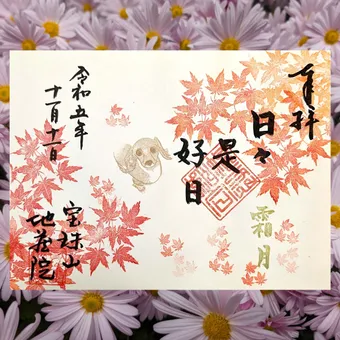 奉拝
日々
是
好日
霜月
令和五年
十一月十一日
宝珠山
地蔵院